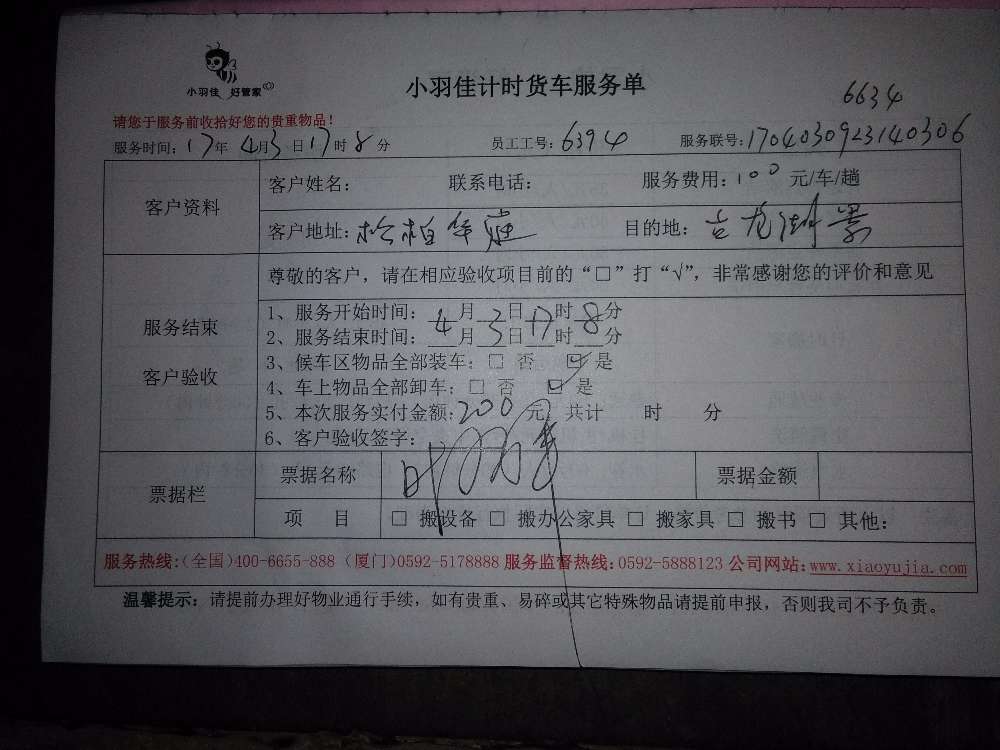 小羽佳 好管家
小羽佳计时货车服务单
6634
请您于服务前收拾好您的贵重物品！
服务时间：17年 4月3日17时8分 员工工号：6394 服务联号：1704030923140306
客户资料
客户姓名： 联系电话： 服务费用：100元/车/趟
客户地址：松柏华庭 目的地：古龙御景
服务结束
客户验收
尊敬的客户，请在相应验收项目前的“□”打“√”，非常感谢您的评价和意见
1、服务开始时间：4月3日17时8分
2、服务结束时间：___月___日___时___分
3、候车区物品全部装车：□ 否 ☑ 是
4、车上物品全部卸车：□ 否 □ 是
5、本次服务实付金额：200元 共计 时 分
6、客户验收签字：
票据栏
票据名称 票据金额
项 目 □ 搬设备 □ 搬办公家具 □ 搬家具 □ 搬书 □ 其他：
服务热线：（全国）400-6655-888（厦门）0592-5178888 服务监督热线：0592-5888123 公司网站：www.xiaoyujia.com
温馨提示：请提前办理好物业通行手续，如有贵重、易碎或其它特殊物品请提前申报，否则我司不予负责。